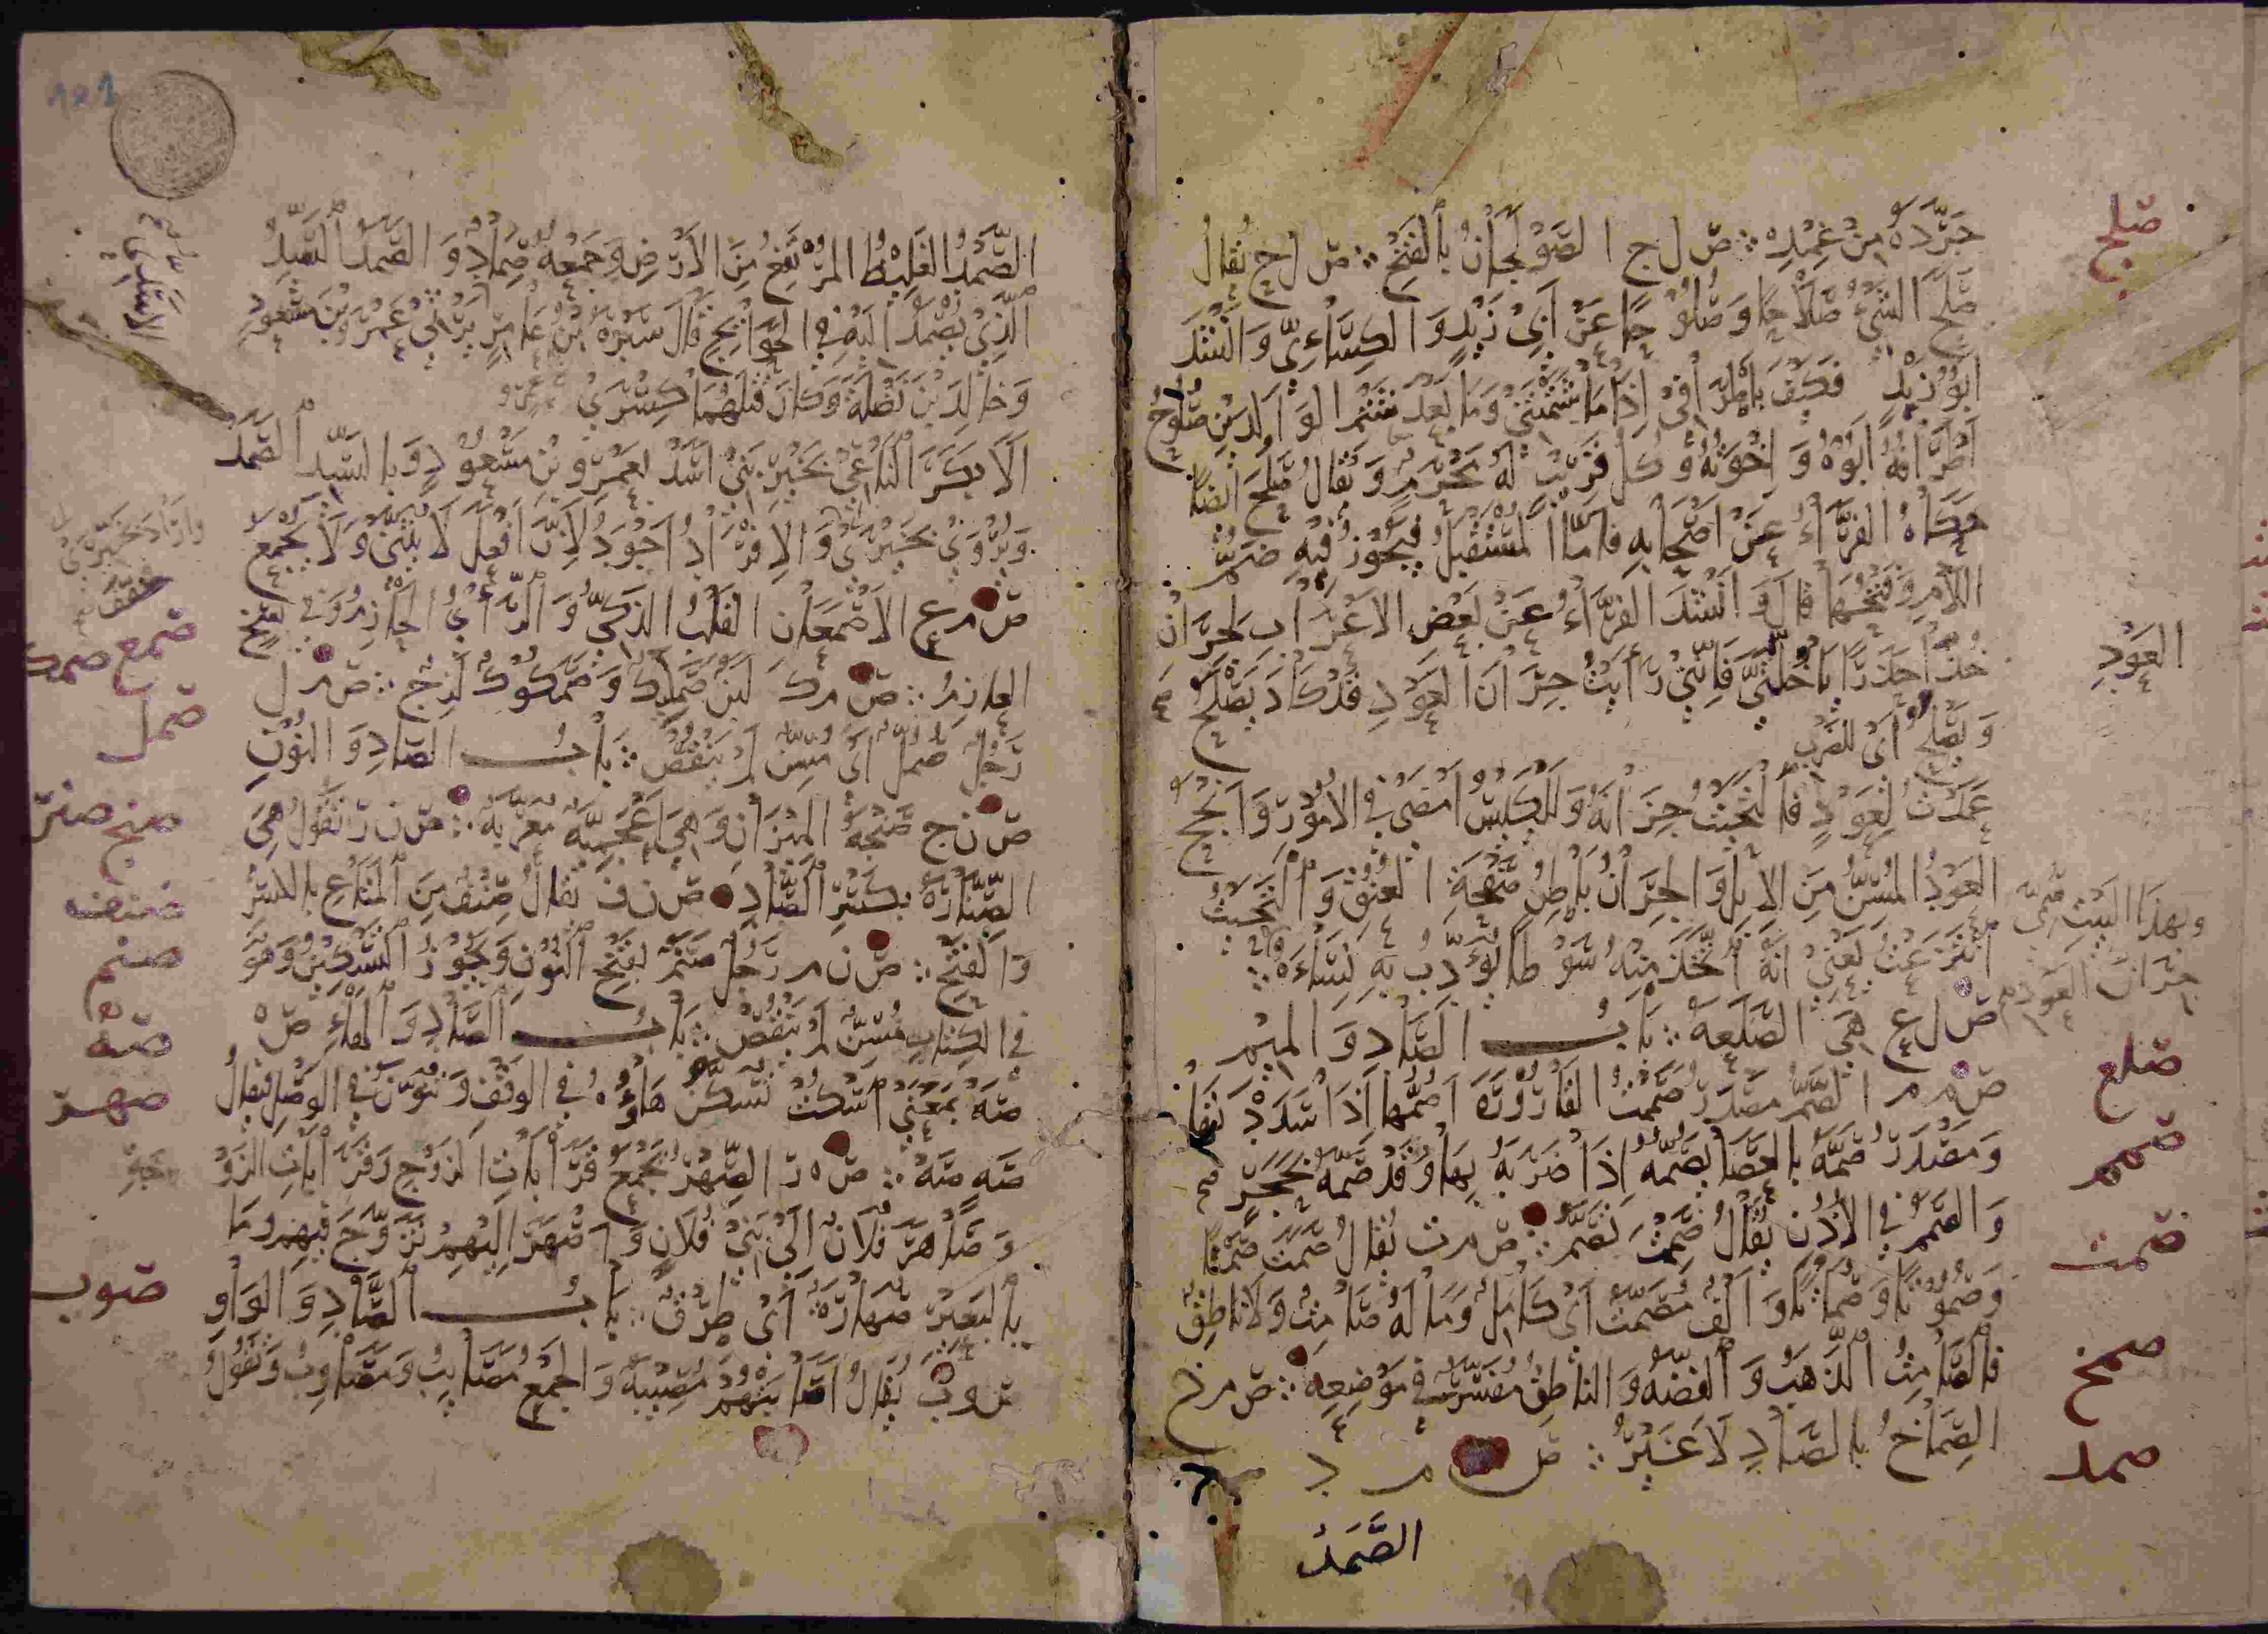 جَرَّدَهُ مِنْ غِمْدِهِ ∴ ص ل ج الصَّوْلَجَانُ بِالْفَتْحِ ∴ ص ل ح يُقَالُ
صَلَحَ الشَّيْءُ صَلَاحًا وَصُلُوْحًا عَنْ أَبِي زَيْدٍ وَالكِسَائِيّ وَأَنْشَدَ
أَبُوْ زَيْدٍ فَكَيْفَ بِأَطْرَافِيْ إِذَا مَا شَتَمْتَنِيْ وَمَا بَعْدَ شَتْمِ الوَالِدَيْنِ صُلُوْحُ
أَطْرَافُهُ أَبُوْهُ وَإِخْوَتُهُ وَكُلُّ قَرِيْبٍ لَهُ مَحْرَمٍ وَيُقَالُ صَلُحَ أَيْضًا
حَكَاهُ الفَرَّاءُ عَنْ أَصْحَابِهِ فَأَمَّا المُسْتَقْبَلُ فَيَجُوْزُ فِيْهِ ضَمُّ
اللَّامِ وَفَتْحُهَا قَالَ وَأَنْشَدَ الفَرَّاءُ عَنْ بَعْضِ الأَعْرَابِ لِجِرَانْ
خُذَا حَذَرًا يَا خُلَّتَيَّ فَإِنَّنِيْ رَأَيْتُ جِرَانَ العَوْدِ قَدْ كَادَ يَصْلَحُ
وَيَصْلُحُ أَيْ لِلضَّرْبِ
عَمَدْتُ لِعَوْدٍ فَالْتَحَيْتُ جِرَانَهُ وَلَلْكَيْسُ أَمْضَى فِي الأُمُوْرِ وَأَنْجَحُ
العَوْدُ المُسِنُّ مِنَ الإِبِلِ وَالجِرَانُ بَاطِنُ صَفْحَةِ العُنُقِ وَالْتَحَيْتُ
انْتَزَعْتُ يَعْنِيْ أَنَّهُ اتَّخَذَ مِنْهُ سَوْطًا يُؤَدِّبُ بِهِ نِسَاءَهُ ∴
ص ل ع هِيَ الصَّلَعَةُ ∴ بَابُ الصَّادِ وَالمِيْمِ
ص م م الصَّمُّ مَصْدَرُ صَمَمْتُ القَارُوْرَةَ أَصُمُّهَا إِذَا سَدَدْتَ فَمَهَا
وَمَصْدَرُ صَمَّهُ بِالعَصَا يَصُمُّهُ إِذَا ضَرَبَهُ بِهَا وَقَدْ صَمَّهُ بِحَجَرٍ
وَالصَّمَمُ فِي الأُذُنِ يُقَالُ صَمِمْتَ تَصَمُّ ∴ ص م ت يُقَالُ صَمَتَ صَمْتًا
وَصُمُوْتًا وَصُمَاتًا وَأَلْفٌ مُصَمَّتٌ أَيْ كَامِلٌ وَمَا لَهُ صَامِتٌ وَلَا نَاطِقٌ
فَالصَّامِتُ الذَّهَبُ وَالفِضَّةُ وَالنَّاطِقُ مُفَسَّرٌ فِي مَوْضِعِهِ ∴ ص م خ
الصِّمَاخُ بِالصَّادِ لَا غَيْرُ ∴ ص م د
الصَّمَدُ
صلح
العَوْدِ
وبهذا البَيْتِ سُمِّيَ
جِرَانَ العَوْدِ
صلع
صمم
صمت
صمخ
صمد
الصَّمْدُ الغَلِيْظُ المُرْتَفِعُ مِنَ الأَرْضِ وَجَمْعُهُ صِمَادٌ وَالصَّمَدُ السَّيِّدُ
الَّذِيْ يُصْمَدُ إِلَيْهِ فِي الحَوَائِجِ قَالَ سَبْرَةُ بْنُ عَامِرٍ يَرْثِيْ عَمْرَو بْنَ مَسْعُوْدٍ
وَخَالِدَ بْنَ نَضْلَةَ وَكَانَ قَتَلَهُمَا كِسْرَى
أَلَا بَكَرَ النَّاعِيْ بِخَيْرَيْ بَنِيْ أَسَدْ بِعَمْرِو بْنِ مَسْعُوْدٍ وَبِالسَّيِّدِ الصَّمَدْ
وَيُرْوَى بِخَيْرِ بَنِيْ وَالإِفْرَادُ أَجْوَدُ لِأَنَّ أَفْعَلَ لَا يُثَنَّى وَلَا يُجْمَعُ
ص م ع الأَصْمَعَانِ القَلْبُ الذَّكِيُّ وَالرَّأْيُ الحَازِمُ وَفِي نُسَخٍ
العَازِمُ ∴ ص م ك لَبَنٌ صَمَكِيْكٌ وَصَمَكُوْكٌ لَزِجٌ ∴ ص م ل
رَجُلٌ صُمُلٌّ أَيْ مُسِنٌّ لَمْ يَنْقُصْ ∴ بَابُ الصَّادِ وَالنُّوْنِ
ص ن ج صَنْجَةُ المِيْزَانِ وَهِيَ أَعْجَمِيَّةٌ مُعَرَّبَةٌ ∴ ص ن ر تَقُوْلُ هِيَ
الصِّنَّارَةُ بِكَسْرِ الصَّادِ ص ن ف يُقَالُ صِنْفٌ مِنَ المَتَاعِ بِالكَسْرِ
وَالفَتْحِ ∴ ص ن م رَجُلٌ صَنَمٌ بِفَتْحِ النُّوْنِ وَيَجُوْزُ التَّسْكِيْنُ وَهُوَ
فِي الكِتَابِ مُسِنٌّ لَمْ يَنْقُصْ ∴ بَابُ الصَّادِ وَالهَاءِ ص ه
صَهْ بِمَعْنَى اسْكُتْ تُسَكَّنُ هَاؤُهُ فِي الوَقْفِ وَتُنَوَّنُ فِي الوَصْلِ فَيُقَالُ
صَهٍ صَهْ ∴ ص ه ر الصِّهْرُ يَجْمَعُ قَرَابَاتِ الزَّوْجِ وَقَرَابَاتِ الزَّوْ
وَصَاهَرَ فُلَانٌ إِلَى بَنِيْ فُلَانٍ وَأَصْهَرَ إِلَيْهِمْ تَزَوَّجَ فِيْهِمْ وَمَا
بِالبَعِيْرِ صُهَارَةٌ أَيْ طِرْقٌ ∴ بَابُ الصَّادِ وَالوَاوِ
ص و ب يُقَالُ أَصَابَتْهُمْ مُصِيْبَةٌ وَالجَمْعُ مَصَائِبُ وَمَصَاوِبُ وَتَقُوْلُ
صمع صمك
صمل
صنج صنر
صنف
صنم
صه
صهر
صوب